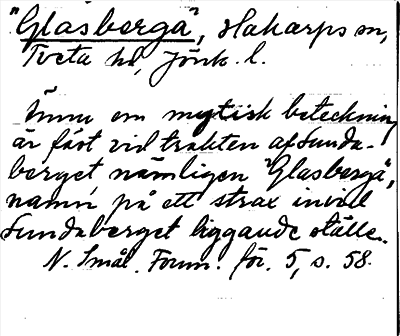 "Glasberga", Hakarps sn,
Tveta hd, Jönk. l.
Ännu en mytisk beteckning
är fäst vid trakten af Sunda-
berget nämligen "Glasberga",
namn på ett strax invid
Sundaberget liggande ställe.
N. Smål. Fornm. för. 5, s. 58.